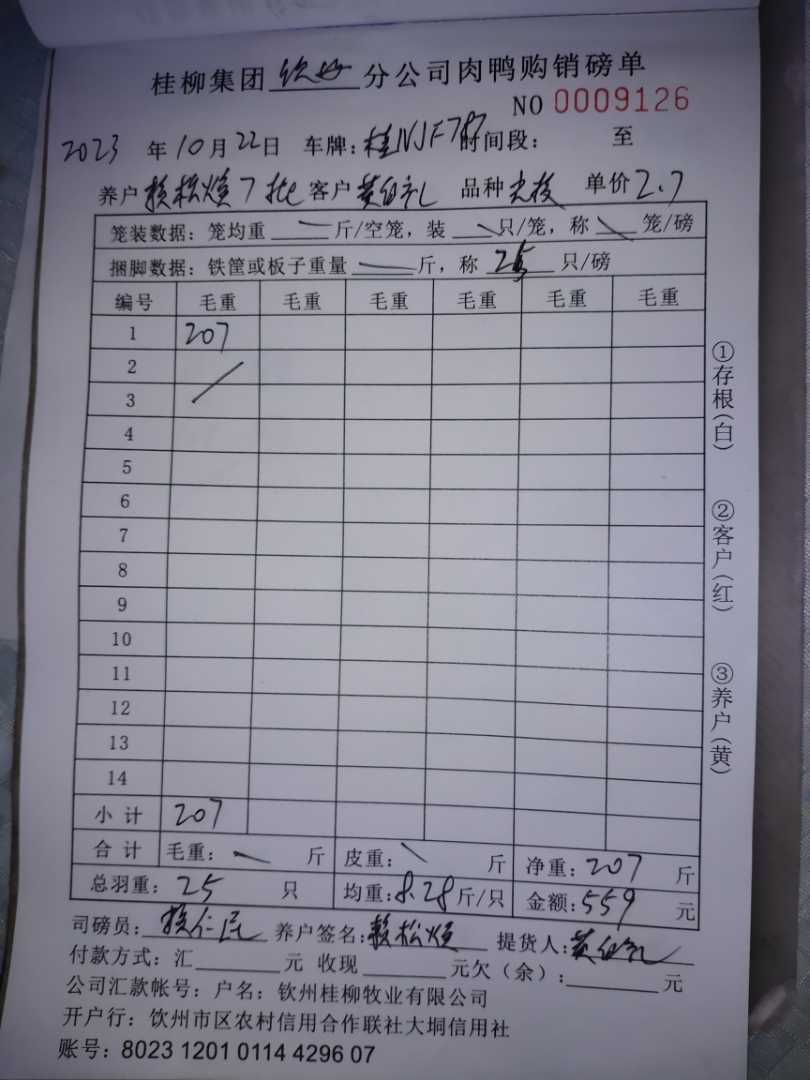 桂柳集团 钦州 分公司肉鸭购销磅单
NO 0009126
2023 年 10 月 22 日 车牌: 桂NJF787 时间段: 至
养户 赖松焕7批 客户 黄伯礼 品种 单价 2.7
笼装数据: 笼均重 斤/空笼, 装 只/笼, 称 笼/磅
捆脚数据: 铁筐或板子重量 斤, 称 25 只/磅
编号 毛重 毛重 毛重 毛重 毛重 毛重
1 207
2
3
4
5
6
7
8
9
10
11
12
13
14
小 计 207
合 计 毛重: 斤 皮重: 斤 净重: 207 斤
总羽重: 25 只 均重: 8.28 斤/只 金额: 559 元
司磅员: 赖仁民 养户签名: 赖松焕 提货人: 黄伯礼
付款方式: 汇 元 收现 元欠(余): 元
公司汇款帐号: 户名: 钦州桂柳牧业有限公司
开户行: 饮州市区农村信用合作联社大垌信用社
账号: 8023 1201 0114 4296 07
①存根(白)
②客户(红)
③养户(黄)